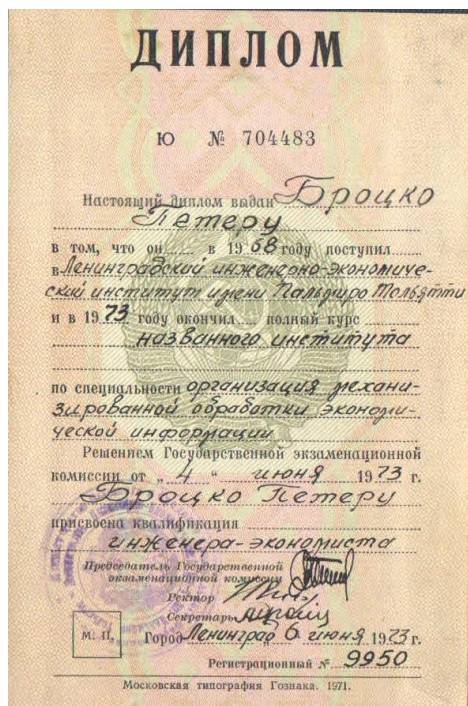 ДИПЛОМ
Ю № 704483
Настоящий диплом выдан Броцко
Петеру
в том, что он в 1968 году поступил
в Ленинградский инженерно-экономиче-
ский институт имени Пальмиро Тольятти
и в 1973 году окончил полный курс
названного института
по специальности организация механи-
зированной обработки экономи-
ческой информации
Решением Государственной экзаменационной
комиссии от „ 4 “ июня 1973 г.
Броцко Петеру
присвоена квалификация
инженера-экономиста
Председатель Государственной
экзаменационной комиссии
Ректор
Секретарь
М. П.
Город Ленинград 6 июня 1973 г.
Регистрационный № 9950
Московская типография Гознака. 1971.